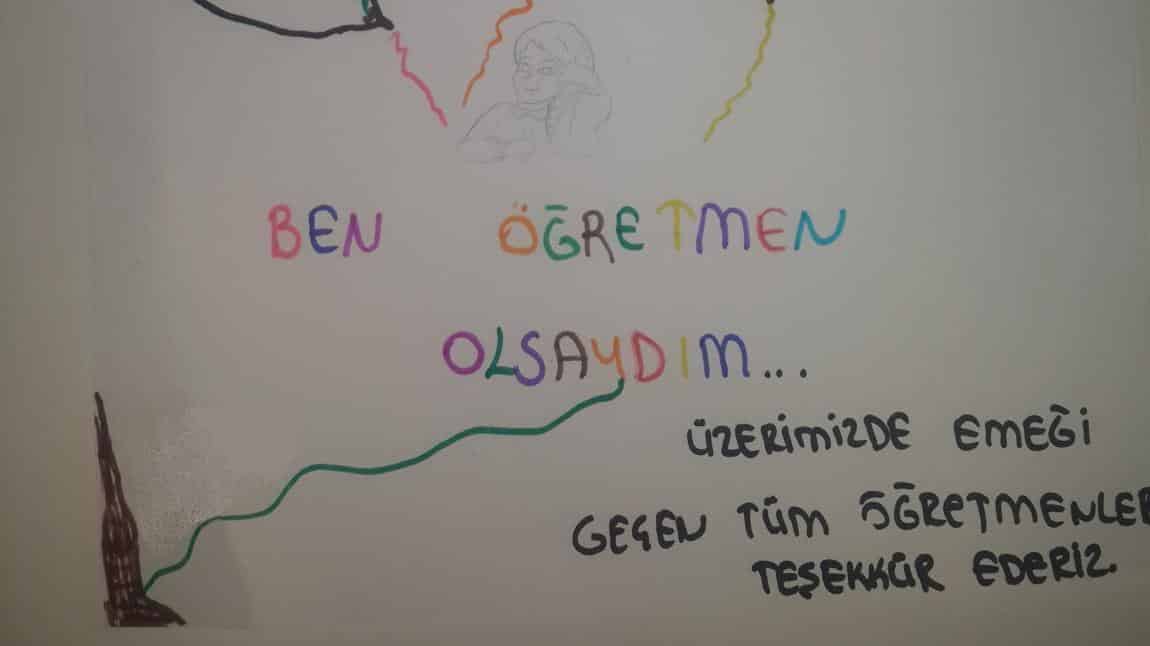 BEN ÖĞRETMEN
OLSAYDIM...
ÜZERİMİZDE EMEĞİ
GEÇEN TÜM ÖĞRETMENLE
TEŞEKKÜR EDERİZ.